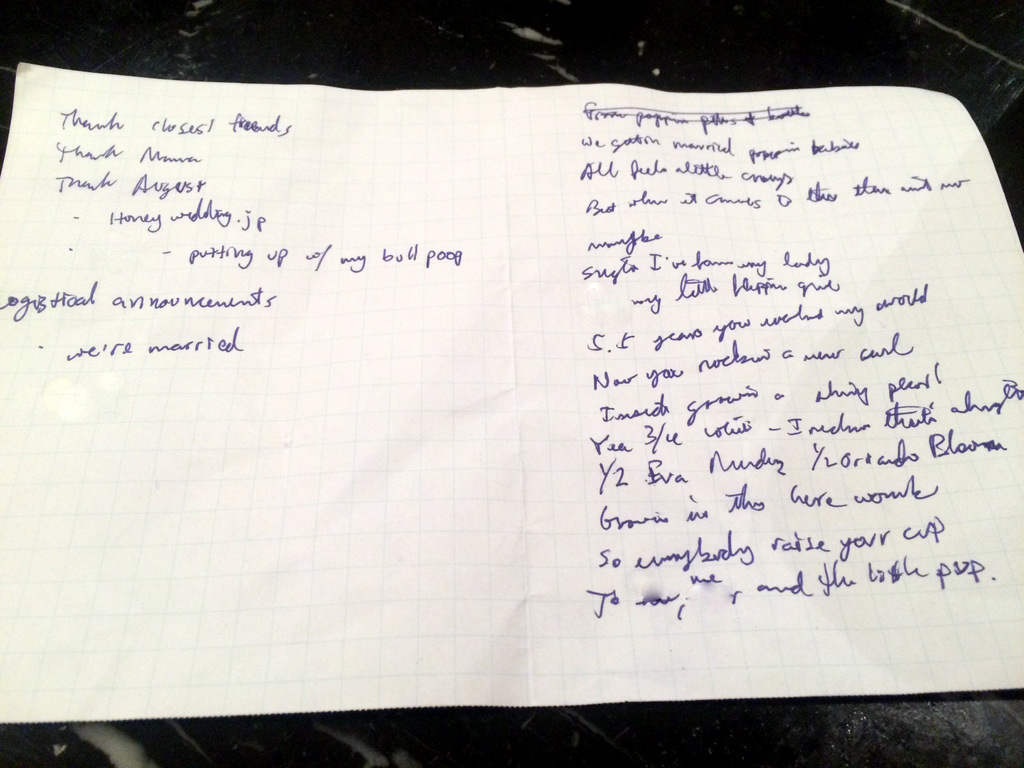 Thank closest friends
Thank Mama
Thank August
- Honey wedding.jp
- putting up w/ my bull poop
logistical announcements
· we're married
From poppin pills &
We gettin married poppin babies
All feels a little crazy
But when it comes to this there ain't no
maybe
I've found my lady
my little flippin girl
5.5 years you rocked my world
Now you rockin a new curl
Inside growin a shiny pearl
Yea 3/4 white - I reckon that's
1/2 Eva Mendez 1/2 Orlando Bloom
Growin in this here womb
So everybody raise your cup
To me, and the little pup.